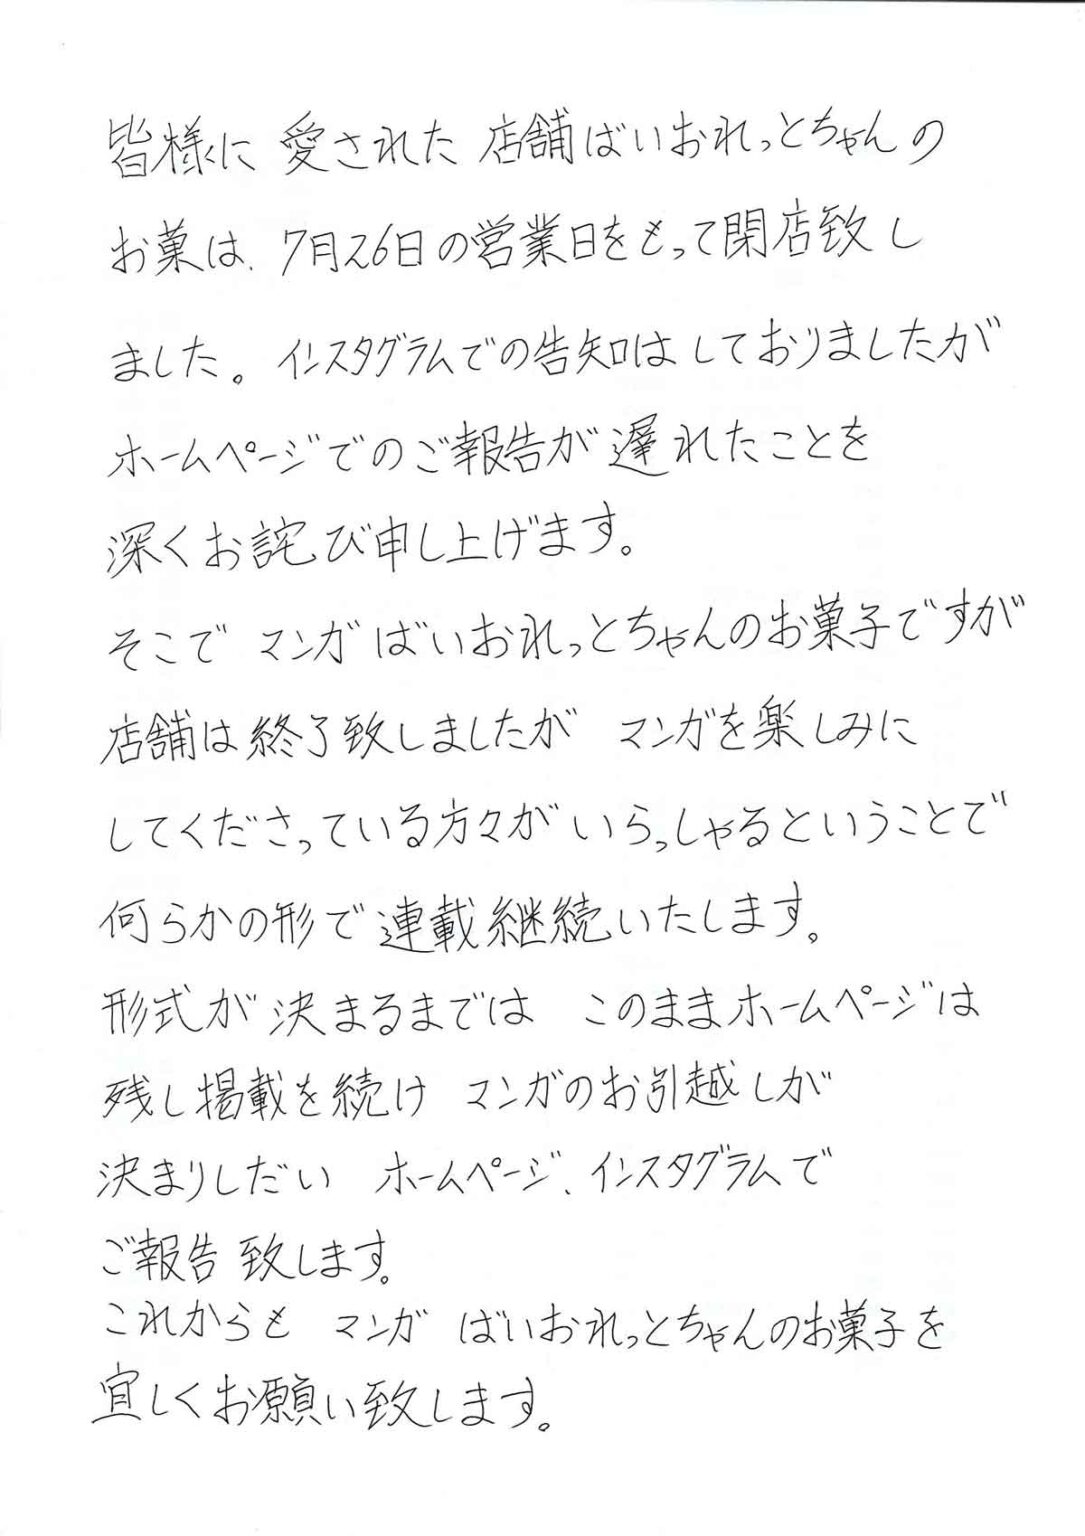 皆様に 愛された 店舗ばいおれっとちゃんの
お菓は、7月26日の営業日をもって閉店致し
ました。 インスタグラムでの告知はしておりましたが
ホームページでのご報告が遅れたことを
深くお詫び申し上げます。
そこで マンガ ばいおれっとちゃんのお菓子ですが
店舗は終了致しましたが マンガを楽しみに
してくださっている方々がいらっしゃるということで
何らかの形で連載継続いたします。
形式が決まるまでは このままホームページは
残し掲載を続け マンガのお引越しが
決まりしだい ホームページ、インスタグラムで
ご報告致します。
これからも マンガ ばいおれっとちゃんのお菓子を
宜しくお願い致します。